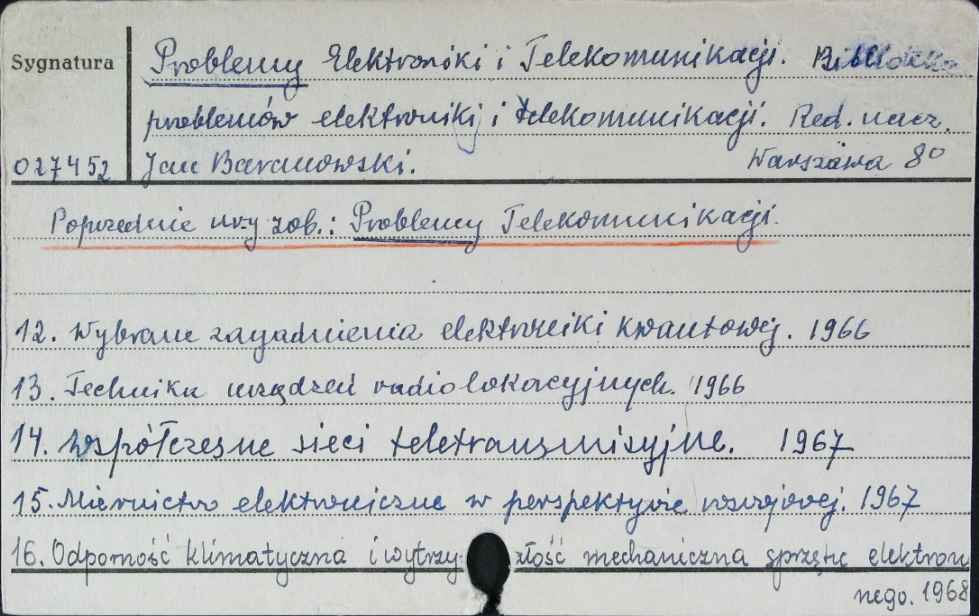 Sygnatura
Problemy Elektroniki i Telekomunikacji. Biblioteka
problemów elektroniki i telekomunikacji. Red. nacz.
027452 Jan Baranowski. Warszawa 8°
Poprzednie nr-y zob.: Problemy Telekomunikacji.
12. Wybrane zagadnienia elektroniki kwantowej. 1966
13. Technika urządzeń radiolokacyjnych. 1966
14. Współczesne sieci teletransmisyjne. 1967
15. Miernictwo elektroniczne w perspektywie rozwojowej. 1967
16. Odporność klimatyczna i wytrzy złość mechaniczna sprzętu elektron
nego. 1968